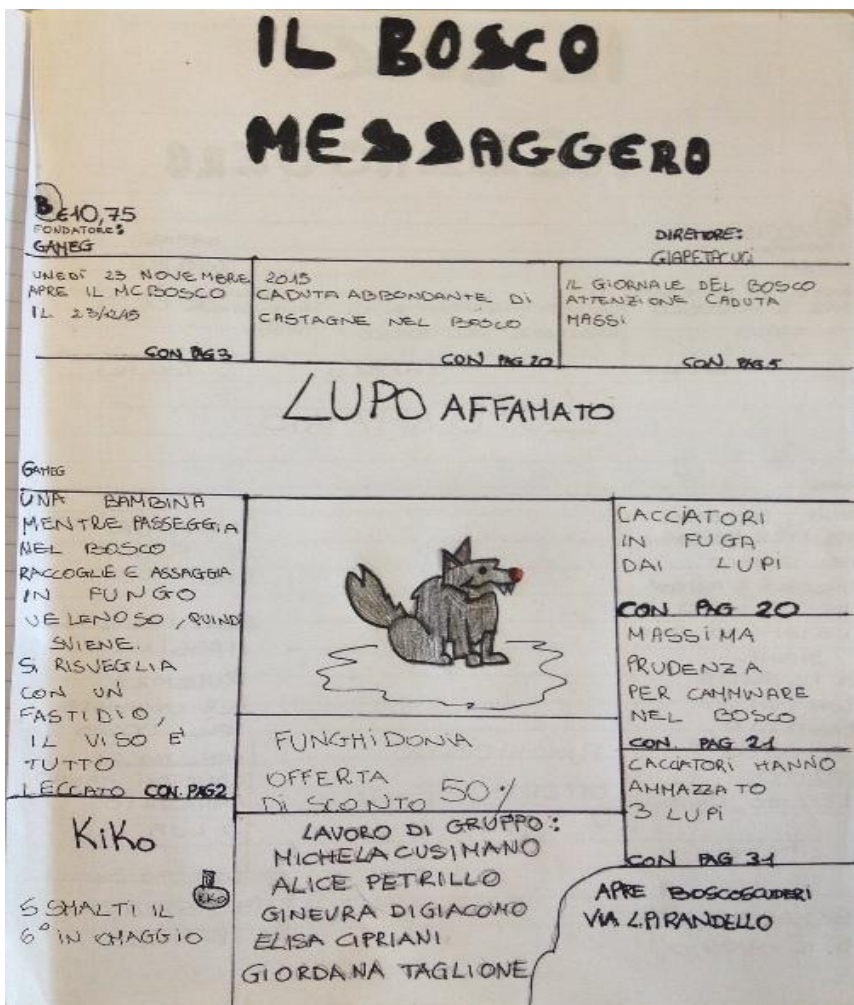 IL BOSCO
MESSAGGERO
B €10,75
FONDATORE:
GAMEG
DIRETTORE:
GIAPETACUCI
UNEDÌ 23 NOVEMBRE
APRE IL MCBOSCO
IL 23/12/15
CON PAG 3
2015
CADUTA ABBONDANTE DI
CASTAGNE NEL BOSCO
CON PAG 20
IL GIORNALE DEL BOSCO
ATTENZIONE CADUTA
MASSI
CON PAG 5
LUPO AFFAMATO
GAMEG
UNA BAMBINA
MENTRE PASSEGGIA
NEL BOSCO
RACCOGLIE E ASSAGGIA
IN FUNGO
VELENOSO, QUINDI
SVIENE.
SI RISVEGLIA
CON UN
FASTIDIO,
IL VISO E'
TUTTO
LECCATO CON PAG2
FUNGHIDONIA
OFFERTA
DI SCONTO 50%
CACCIATORI
IN FUGA
DAI LUPI
CON PAG 20
MASSIMA
PRUDENZA
PER CAMMINARE
NEL BOSCO
CON. PAG 21
CACCIATORI HANNO
AMMAZZATO
3 LUPI
CON PAG 31
KiKo
KIKO
5 SMALTI IL
6° IN OMAGGIO
LAVORO DI GRUPPO:
MICHELA CUSIMANO
ALICE PETRILLO
GINEVRA DIGIACOMO
ELISA CIPRIANI
GIORDANA TAGLIONE
APRE BOSCOSCUDERI
VIA L.PIRANDELLO